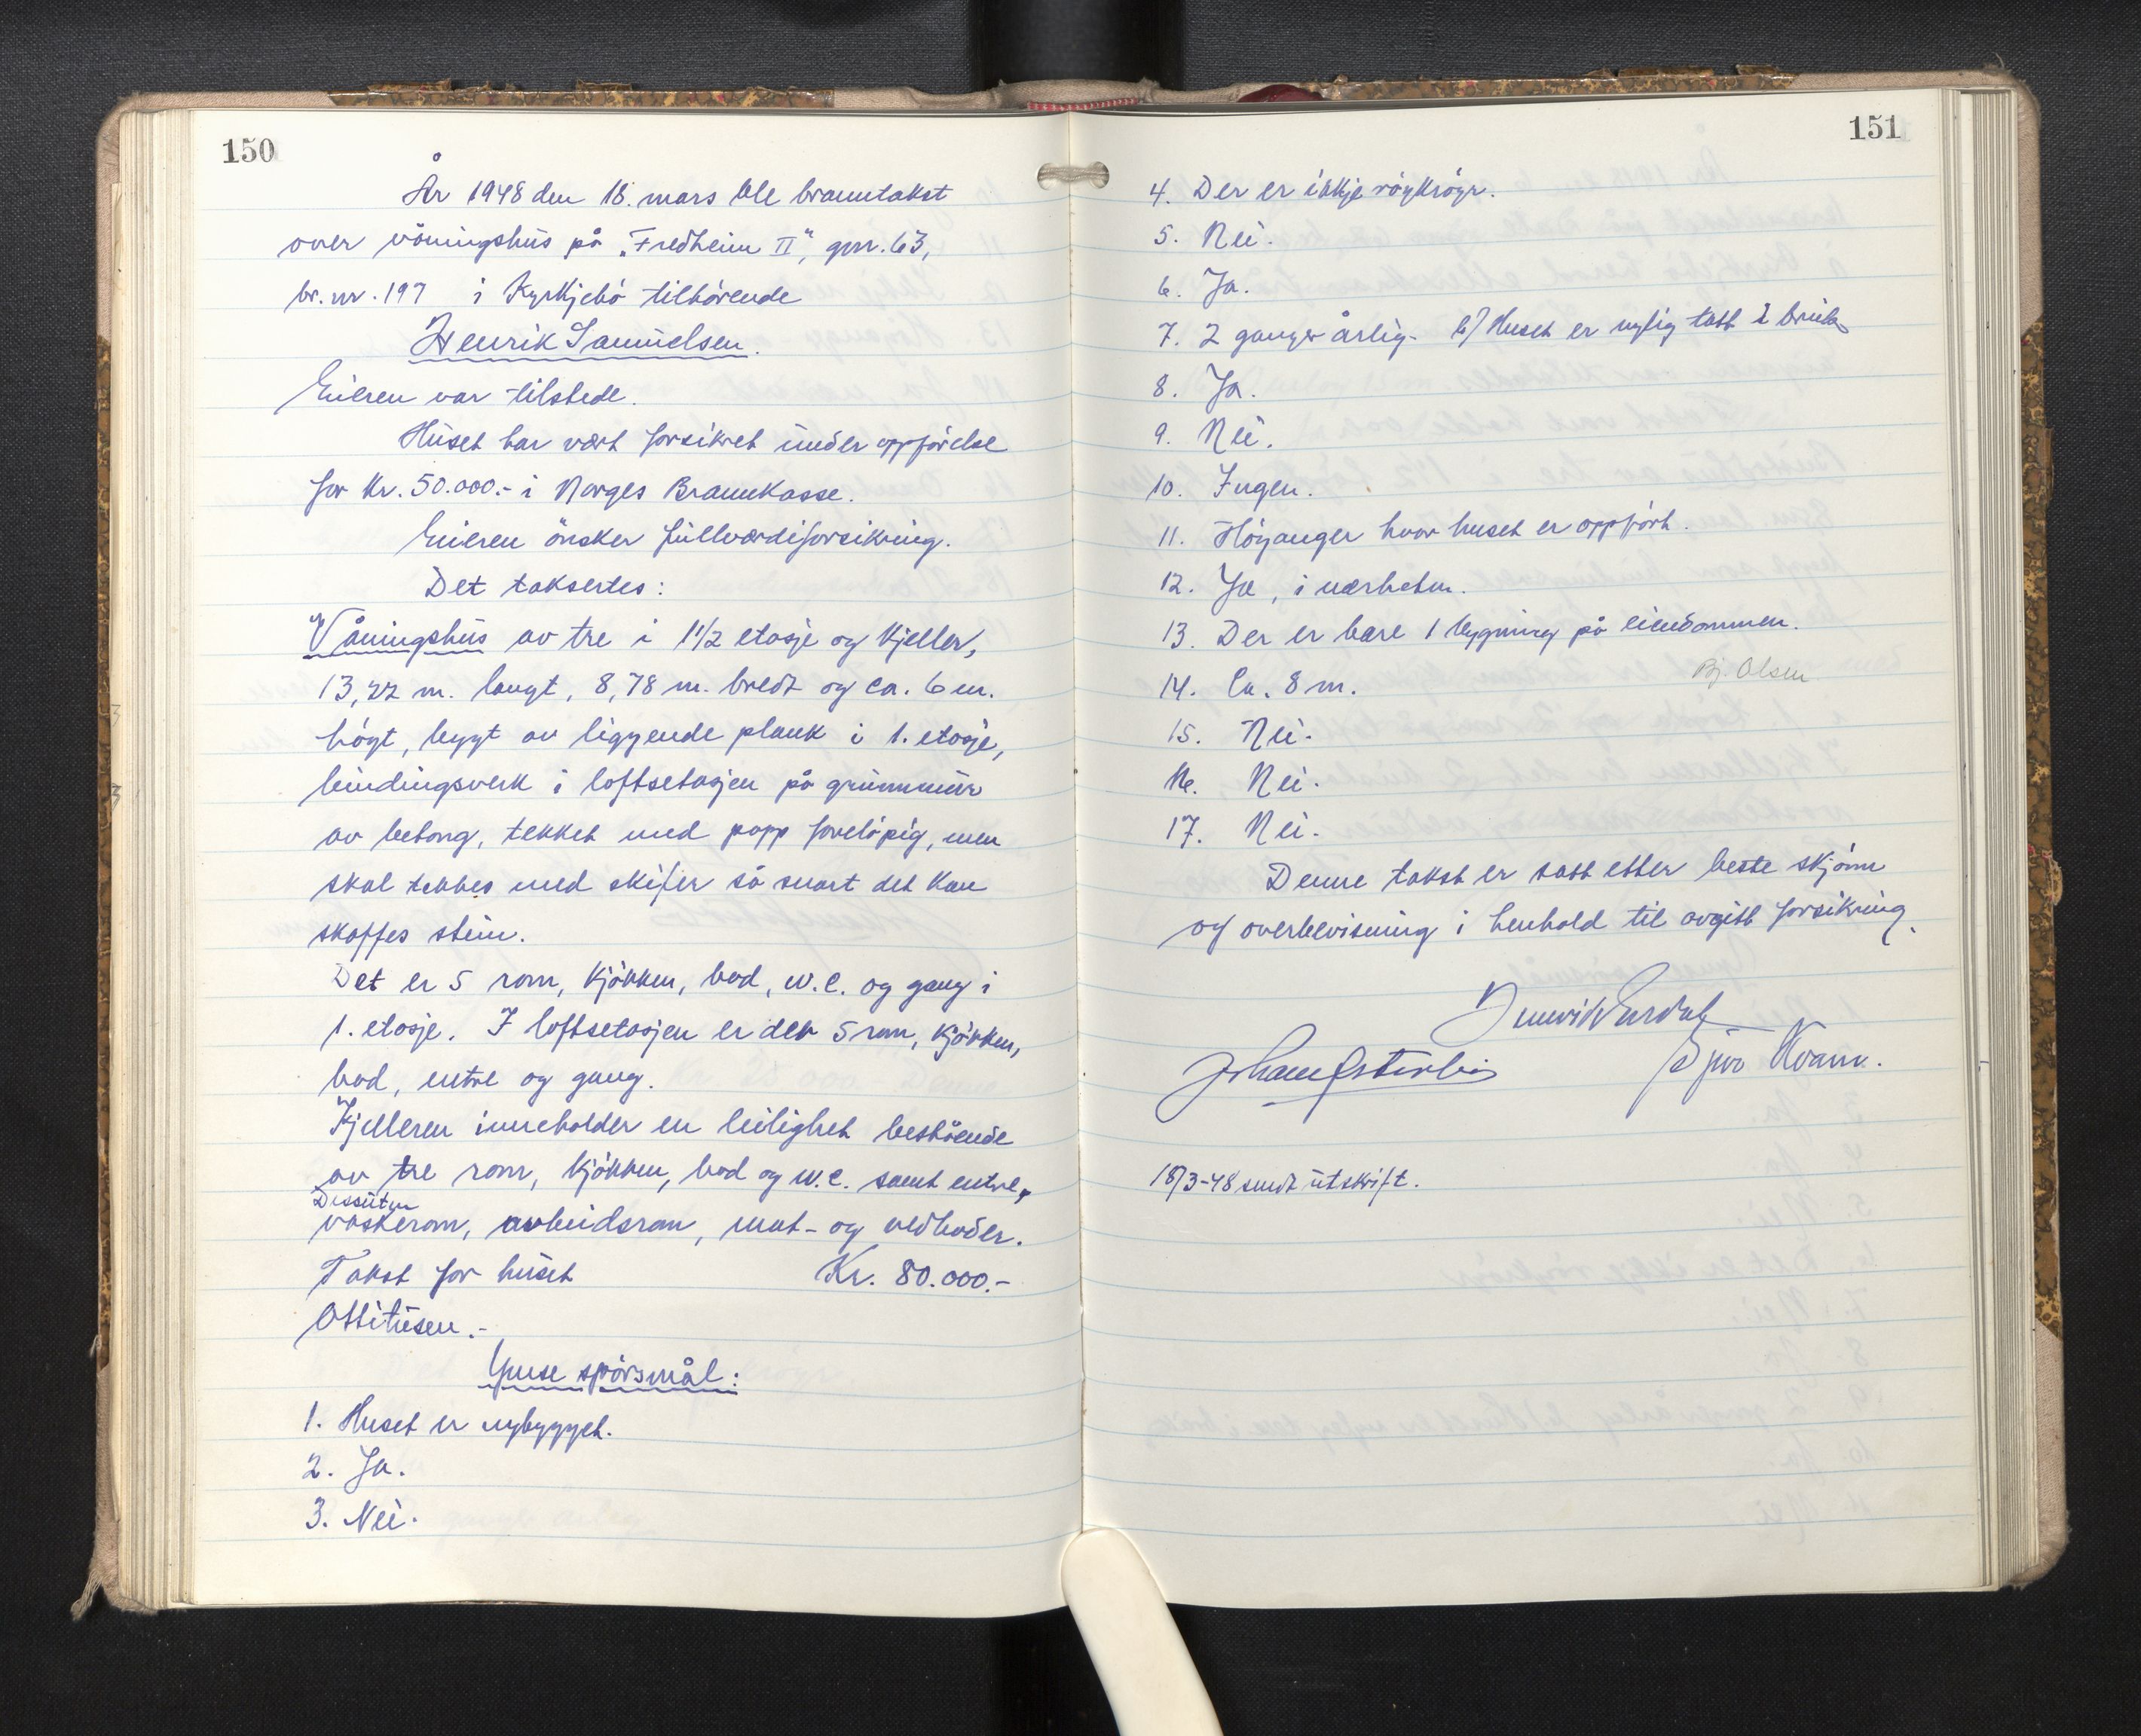 150
År 1948 den 18. mars ble branntakst
over våningshus på „Fredheim II", gnr. 63,
br. nr. 197 i Kyrkjebö tilhörende
Henrik Samuelsen.
Eieren var tilstede.
Huset har vært forsikret under oppförelse
for kr. 50.000.- i Norges Brannkasse.
Eieren önsker fullverdiforsikring.
Det taksertes:
Våningshus av tre i 1 1/2 etasje og kjeller,
13,22 m. langt, 8,78 m. bredt og ca. 6 m.
högt, bygt av liggende plank i 1. etasje,
bindingsverk i loftsetasjen på grunnmur
av betong, tekket med papp forelöpig, men
skal tekkes med skifer så snart det kan
skaffes stein.
Det er 5 rom, kjökken, bad, w.c. og gang i
1. etasje. I loftsetasjen er det 5 rom, kjökken,
bad, entre og gang.
Kjelleren inneholder en leilighet bestående
av tre rom, kjökken, bad og w.c. samt entre.
Dessuten
vaskerom, arbeidsrom, mat- og vedboder.
Takst for huset Kr. 80.000.-
Ottitusen.-
Ymse spörsmål:
1. Huset er nybygget.
2. Ja.
3. Nei.
151
4. Der er ikkje röykröyr.
5. Nei.
6. Ja.
7. 2 ganger årlig. b) Huset er nylig tatt i bruk
8. Ja.
9. Nei.
10. Ingen.
11. Höyanger hvor huset er oppfört.
12. Ja, i nærheten.
13. Der er bare 1 bygning på eiendommen.
Bj. Olsen
14. Ca. 8 m.
15. Nei.
16. Nei.
17. Nei.
Denne takst er satt etter beste skjönn
og overbevisning i henhold til avgitt forsikring.
Sjur Kvamme.
18/3-48 sendt utskrift.